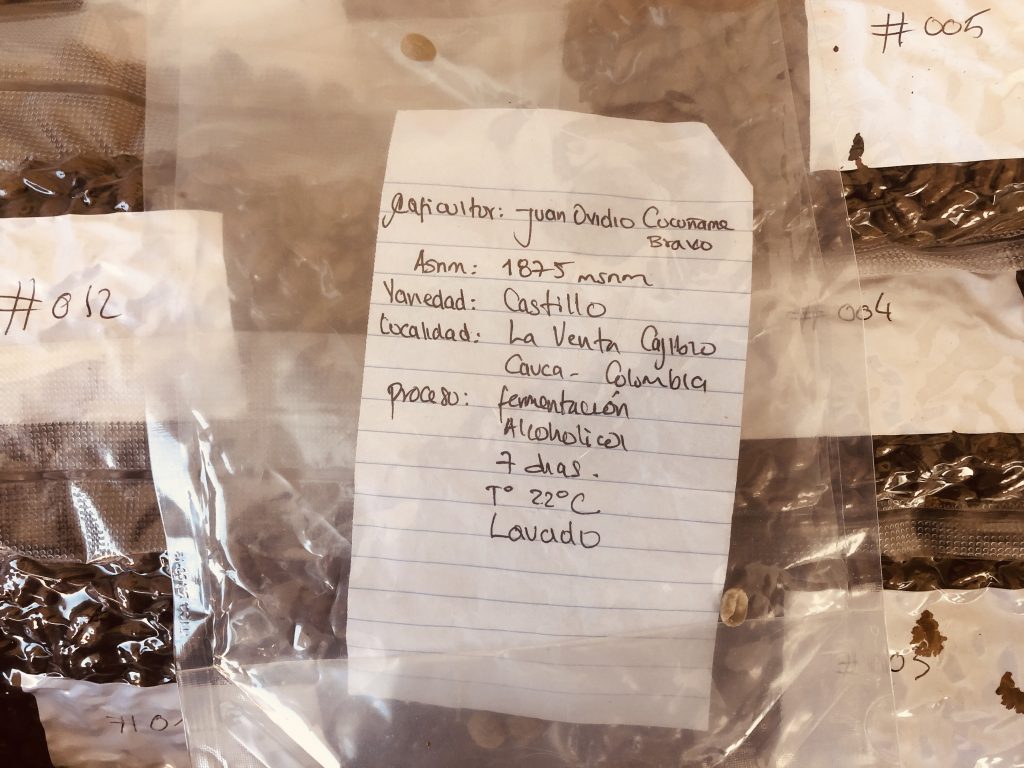 #005
Caficultor: Juan Ovidio Cucuñame
Bravo
Asnm: 1875 msnm
#012
Variedad: Castillo
#004
Localidad: La Venta Cajibio
Cauca - Colombia
proceso: fermentación
Alcoholica
7 dias.
T° 22°C
Lavado